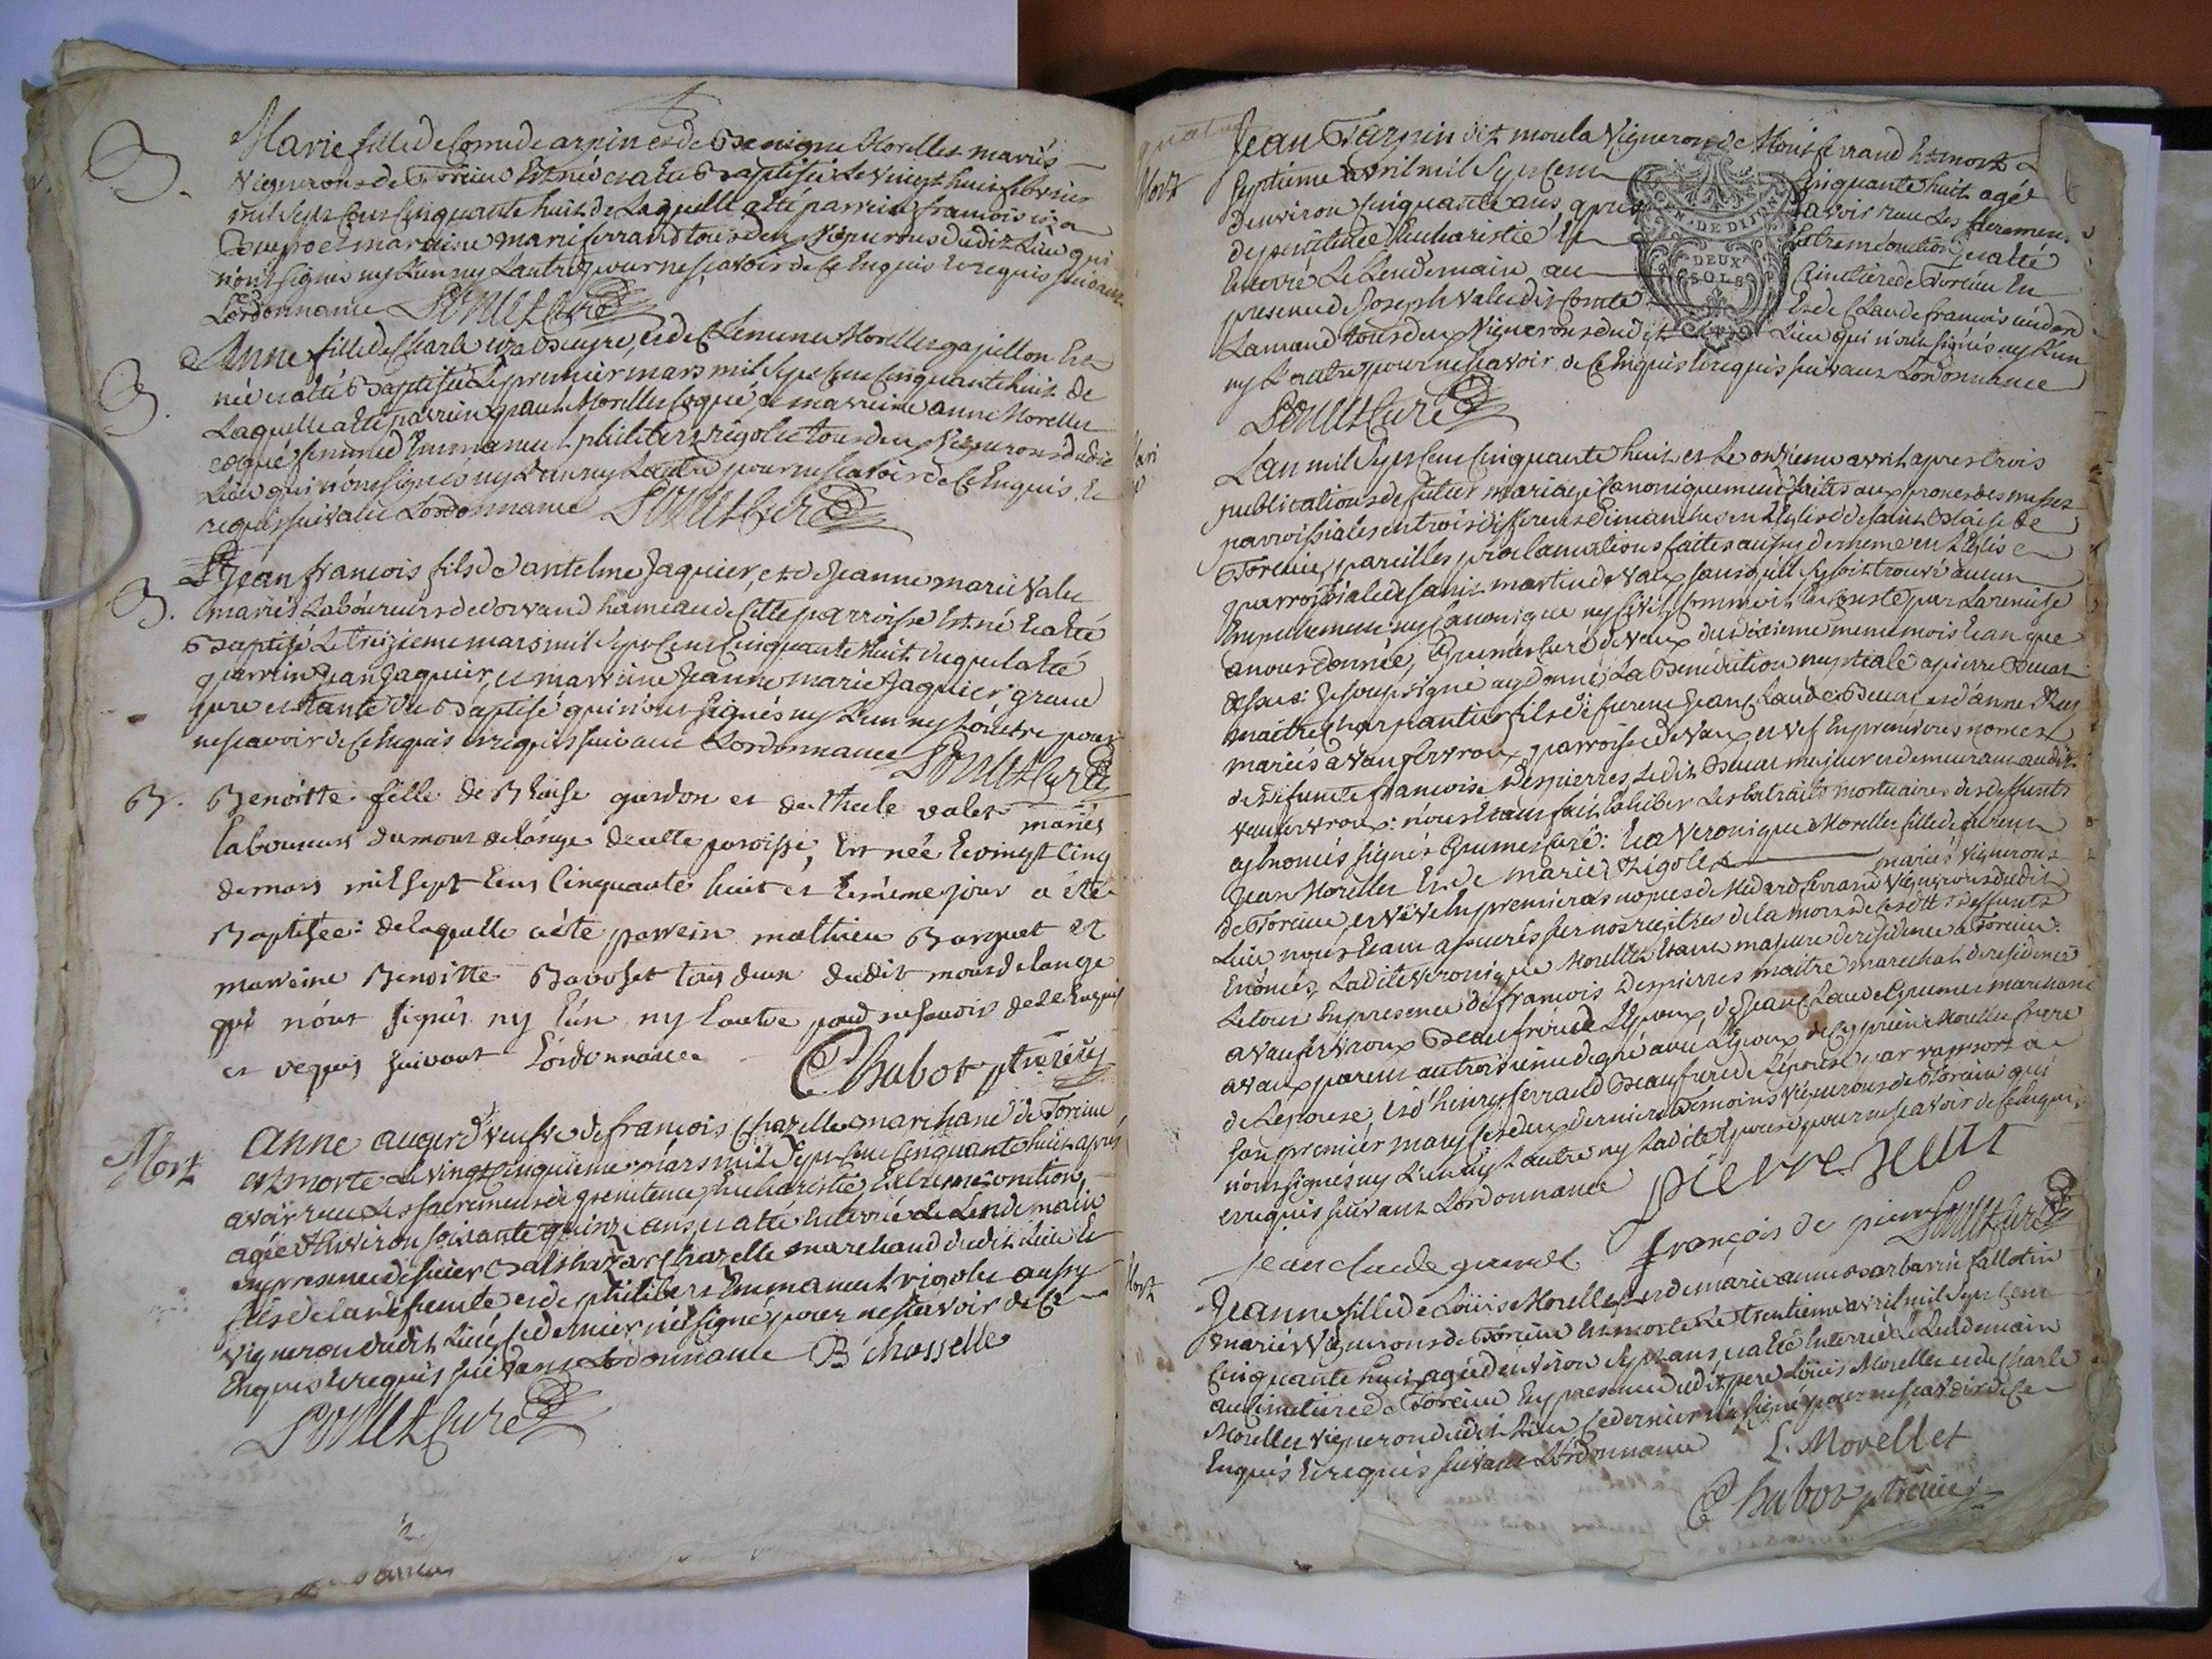 B.
Marie fille de Come de arpin et de Benigne Morellet mariés
Vignerons de Torcieu Est née et a été Baptisée le vingt huit febvrier
mil sept cens cinquante huit de Laquelle a été parrein francois
et marraine marie ferrand tous deux Vignerons dudit Lieu qui
n'ont signés ny L'un ny L'autre pour ne scavoir de ce Enquis et requis suivant
L'ordonnance Curé
B.
Anne fille de Charle et de Clemence Morellet gajillon Est
née et a été Baptisée Le premier mars mil sept cens cinquante huit de
Laquelle a été parrein Morellet coqué, et marreine anne Morellet
coqué femme d'Emmanuel philibert rigolet tous deux Vignerons dudit
Lieu qui n'ont signés ny L'un ny L'autre pour ne scavoir de ce Enquis Et
requis suivant L'ordonnance Curé
B.
Jean francois fils de antelme Jaquier, et de Jeanne marie Valet
mariés Laboureurs de Dorvand hameau de cette parroisse Est né Et a été
Baptisé Le treizieme mars mil sept cens cinquante huit duquel a été
parrein Jean Jaquier, et marreine Jeanne marie Jaquier grand
pere et tante du Baptisé qui n'ont signés ny L'un ny L'autre pour
ne scavoir de ce Enquis et requis suivant L'ordonnance Curé
B. Benoitte fille de Blaise guerdon et de valet mariés
laboureurs du mont delange de cette paroisse, Est née Le vingt cinq
de mars mil sept cens cinquante huit et le même jour a été
Baptisée: de laquelle a été parrein mathieu Barquet et
marreine Benoitte Babolet tous deux dudit mont de lange
qui n'ont signés ny l'un ny l'autre pour ne scavoir de ce Enquis
et requis suivant L'ordonnance Chabot ptre vic
Mort
Anne augerd veufve de francois Chazelle marchand de Torcieu
est morte Le vingt cinquieme mars mil sept cens cinquante huit après
avoir reçu Les sacremens de penitence Eucharistie, Extreme onction,
agée d'Environ soixante quinze ans, et a été Enterrée Le Lendemain
en presence de sieur Balthazar Chazelle marchand dudit Lieu Et
fils de la défunte et de philibert Emmanuel rigolet aussy
vigneron dudit Lieu, ce dernier n'a signé pour ne scavoir de ce
Enquis et requis suivant L'ordonnance B chasselle
Curé
Mort
Jean Tarpin dit moula Vigneron de Montferrand Est mort Le
septieme avril mil sept cens cinquante huit agé
d'environ cinquante ans, apres avoir reçu Les sacremens
de penitence Eucharistie Et Extremeonction, et a été
Enterré Le Lendemain au cimetiere de Torcieu En
presence de Joseph Valet dit Comte Et de Claude francois
Lamand tous deux Vignerons dudit Lieu qui n'ont signés ny L'un
ny L'autre pour ne scavoir de ce Enquis et requis suivant L'ordonnance
Curé
DE DIJON
DEUX
SOLS
L'an mil sept cens cinquante huit et Le onzieme avril apres trois
publications de futur mariage canoniquement faites aux prones des messes
parroissiales en trois differens dimanches en L'Eglise de saint Blaise de
Torcieu, pareilles proclamations faites aussy de meme en L'Eglise
parroissiale de saint martin de Vaux sans qu'il se soit trouvé aucun
Empechement ny canonique ny civil comme il conste par La remise
a nous donnée, Grumet Curé de Vaux du dixieme meme mois Et an que
dessus: Je soussigné ay donné La Benediction nuptiale a pierre
maitre charpantier fils de furent Jean Claude et d'anne
mariés a Vaufevroux parroisse de Vaux et vef En premieres nopces
de defunte francoise Despierres, Ledit majeur et demeurant audit
Vaufevroux: nous Etant fait Exhiber Les Extraits mortuaires des deffunts
cy Enoncés signés Grumet Curé: Et a Veronique Morellet fille de furent
Jean Morellet Et de marie Rigolet mariés Vignerons
de Torcieu, et veve En premieres nopces de Medard ferrand Vigneron dudit
Lieu nous Etant assurés sur nos registres de la mort de ces dits deffunts
Enoncés, Ladite Veronique Morellet Etant majeure de residence a Torcieu:
Le tout En presence de francois Despierres maitre marechal de residence
a Vaufevroux Beaufrere de L'Epoux, de Jean Claude Grumet marchand
a Vaux parent au troisieme degré avec L'Epoux, de Cyprien Morellet frere
de L'epouse, Et d'henry ferrand Beaufrere de L'épouse par rapport a
son premier mary ces deux derniers temoins Vignerons de Torcieu qui
n'ont signés ny L'un ny L'autre ny Ladite Epouse pour ne scavoir de ce Enquis
et requis suivant L'ordonnance pierre
jean claude grumet françois de pierre Curé
Mort
Jeanne fille de Loüis Morellet et de marie anne Barbarin fallotin
mariés Vignerons de Torcieu Est morte Le trentieme avril mil sept cens
cinquante huit agée d'environ sept ans, et a été Enterrée Le Lendemain
au cimetiere de Torcieu En presence dudit pere Loüis Morellet et de charle
Morellet vigneron dudit Lieu, ce dernier n'a signé pour ne scavoir de ce
Enquis Et requis suivant L'ordonnance L. Morellet
Chabot ptre vic